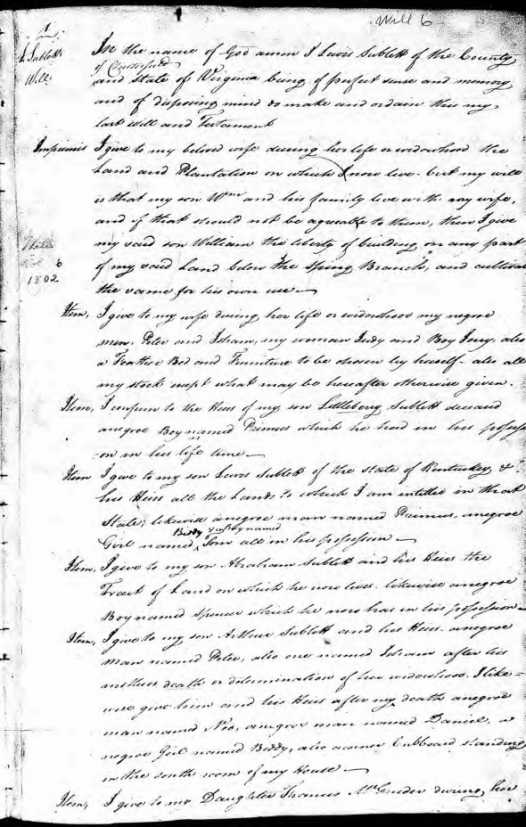 Will 6
L. Sublett's
Will
In the name of God amen I Lewis Sublett of the County
of Chesterfield
and State of Virginia being of perfect sense and memory
and of disposing mind do make and ordain this my
last Will and Testament
Imprimis I give to my beloved wife during her life or widowhood the
Land and Plantation on which I now live. but my will
is that my son Wm and his family live with my wife,
and if that should not be agreeable to them, then I give
my said son William the liberty of building on any part
of my said Land below the Spring Branch, and cultivate
the same for his own use
6
1802
Item, I give to my wife during her life or widowhood my negroe
men. Peter and Isham, my woman Judy and Boy also
a Feather Bed and Furniture to be chosen by herself. also all
my stock except what may be hereafter otherwise given.
Item, I confirm to the Heirs of my son Littleberry Sublett deceased
a negroe Boy named Primus which he had in his possessi
on in his life time
Item I give to my son Lewis Sublett of the state of Kentuckey, &
his Heirs all the Lands to which I am entitled in that
State, likewise a negroe man named Primus. a negroe
Betty & a Boy named
Girl named Tom all in his possession
Item, I give to my son Abraham Sublett and his Heirs the
Tract of Land on which he now lives. likewise a negroe
Boy named Spencer which he now has in his possession
Item, I give to my son Arthur Sublett and his Heirs. a negroe
man named Peter, also one named Isham after his
mothers death or determination of her widowhood. I like=
wise give him and his Heirs after my death a negroe
man named a negroe man named Daniel, a
negroe Girl named Biddy, also a corner Cubboard standing
in the south room of my House
Item, I give to my Daughter Frances McGruder during her